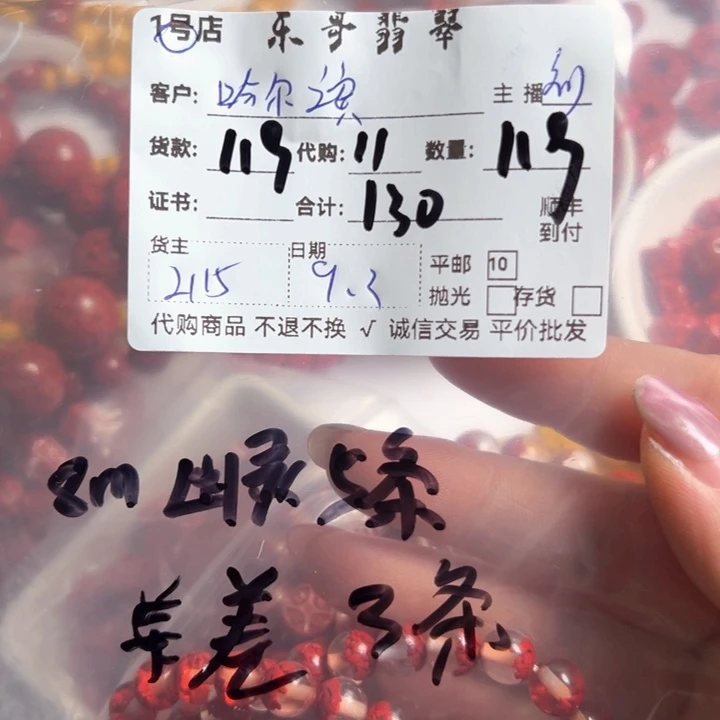 1号店 乐哥翡翠
客户: 哈尔滨 主播 刘
货款: 119 代购: 11 数量: 119
证书: 合计: 130 顺丰
到付
货主 日期 平邮 10
2115 9.3 抛光 存货
代购商品 不退不换 √ 诚信交易 平价批发
8m 幽灵 5条
车差 3条